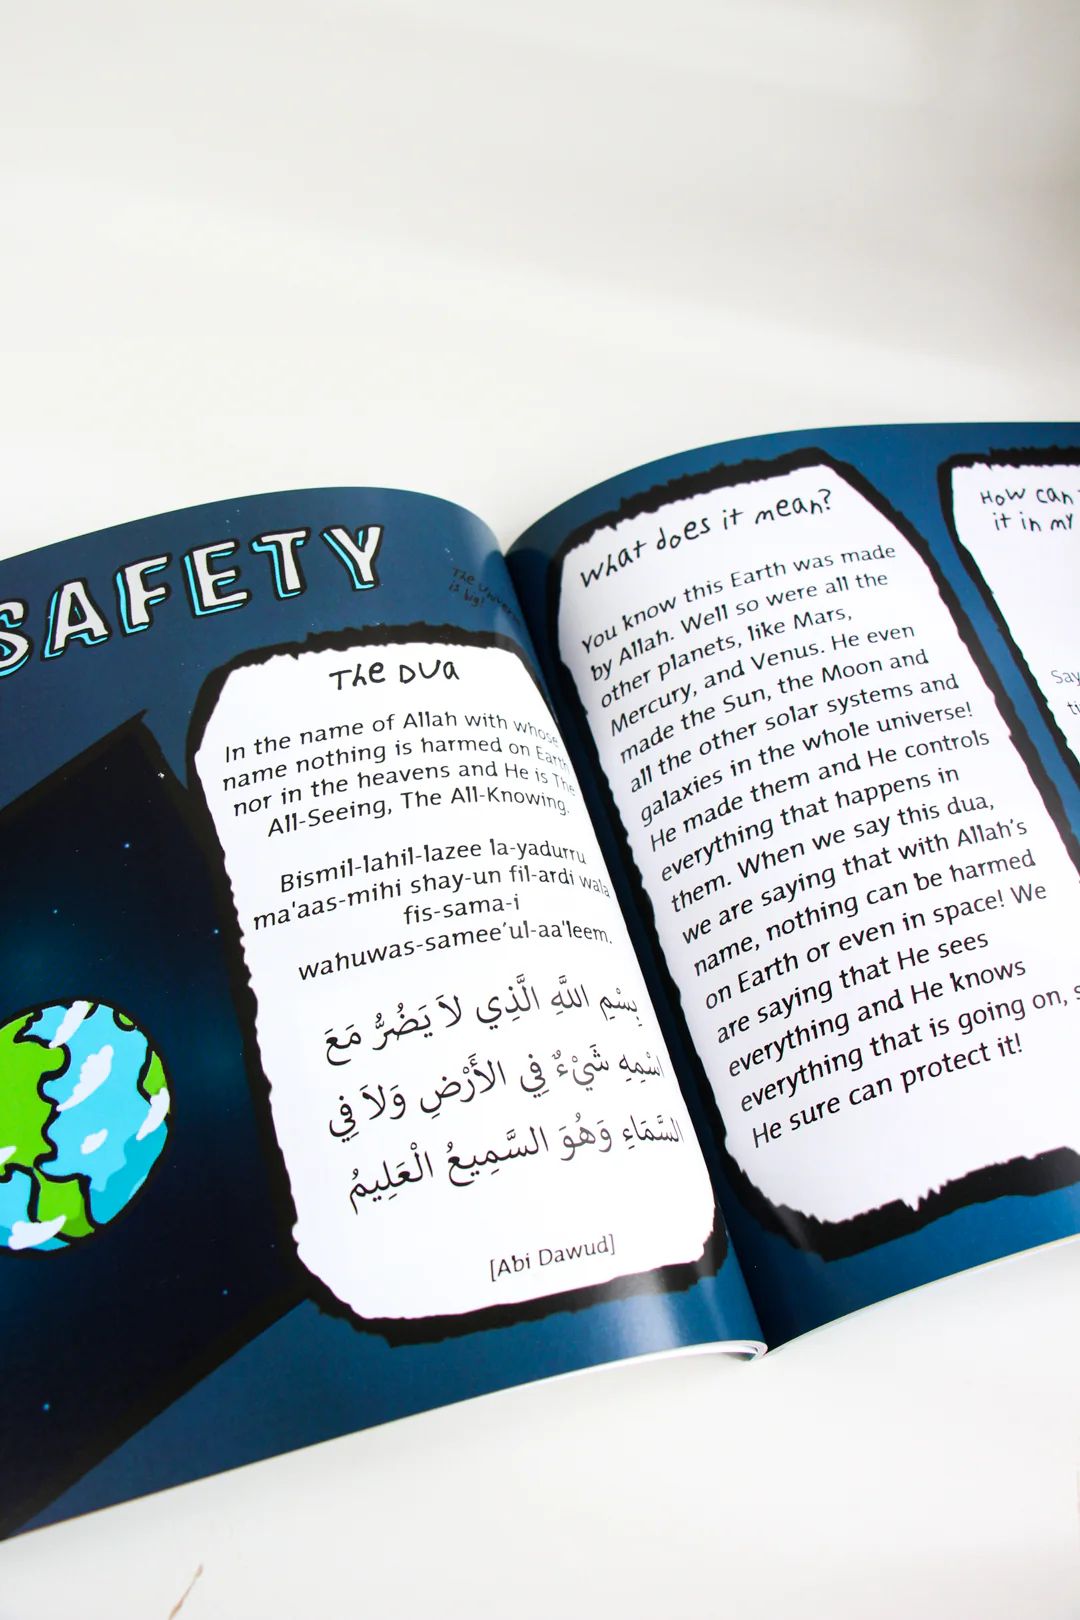 SAFETY
The Universe
is big!
The Dua
In the name of Allah with whose
name nothing is harmed on Earth
nor in the heavens and He is The
All-Seeing, The All-Knowing.
Bismil-lahil-lazee la-yadurru
ma'aas-mihi shay-un fil-ardi wala
fis-sama-i
wahuwas-samee'ul-aa'leem.
بِسْمِ اللَّهِ الَّذِي لاَ يَضُرُّ مَعَ
اسْمِهِ شَيْءٌ فِي الأَرْضِ وَلاَ فِي
السَّمَاءِ وَهُوَ السَّمِيعُ الْعَلِيمُ
[Abi Dawud]
What does it mean?
You know this Earth was made
by Allah. Well so were all the
other planets, like Mars,
Mercury, and Venus. He even
made the Sun, the Moon and
all the other solar systems and
galaxies in the whole universe!
He made them and He controls
everything that happens in
them. When we say this dua,
we are saying that with Allah's
name, nothing can be harmed
on Earth or even in space! We
are saying that He sees
everything and He knows
everything that is going on, s
He sure can protect it!
How can
it in my
Say
ti